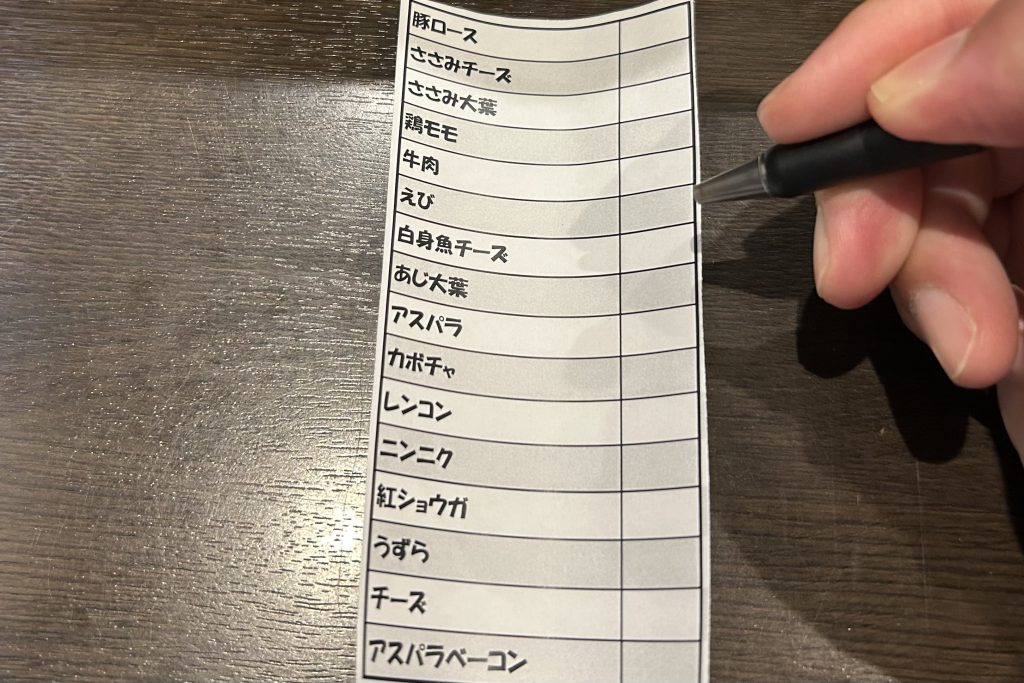 豚ロース
ささみチーズ
ささみ大葉
鶏モモ
牛肉
えび
白身魚チーズ
あじ大葉
アスパラ
カボチャ
レンコン
ニンニク
紅ショウガ
うずら
チーズ
アスパラベーコン